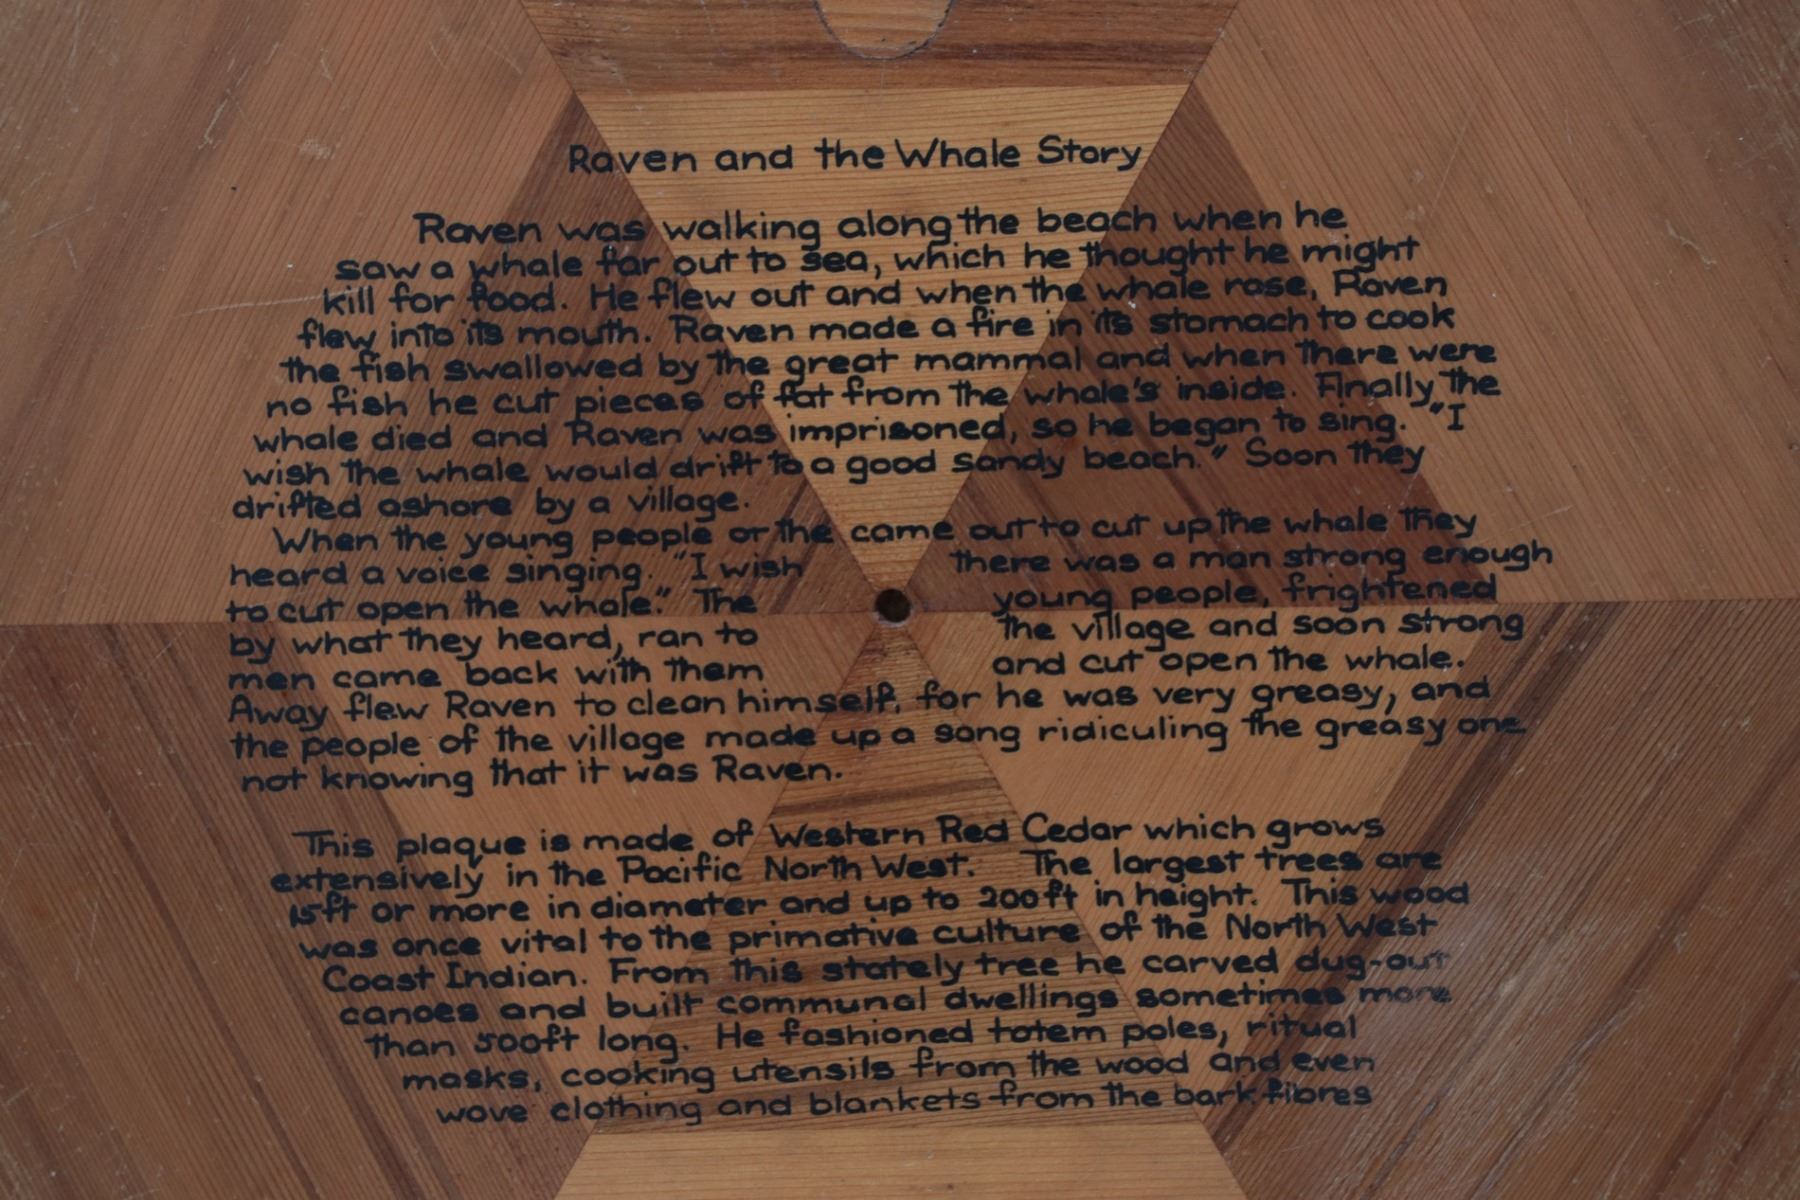 Raven and the Whale Story
Raven was walking along the beach when he
saw a whale far out to sea, which he thought he might
kill for food. He flew out and when the whale rose, Raven
flew into its mouth. Raven made a fire in its stomach to cook
the fish swallowed by the great mammal and when there were
no fish he cut pieces of fat from the whale's inside. Finally the
whale died and Raven was imprisoned, so he began to sing. "I
wish the whale would drift to a good sandy beach." Soon they
drifted ashore by a village.
When the young people or the came out to cut up the whale they
heard a voice singing. "I wish there was a man strong enough
to cut open the whale." The young people, frightened
by what they heard, ran to the village and soon strong
men came back with them and cut open the whale.
Away flew Raven to clean himself, for he was very greasy, and
the people of the village made up a song ridiculing the greasy one
not knowing that it was Raven.
This plaque is made of Western Red Cedar which grows
extensively in the Pacific North West. The largest trees are
15ft or more in diameter and up to 200ft in height. This wood
was once vital to the primative culture of the North West
Coast Indian. From this stately tree he carved dug-out
canoes and built communal dwellings sometimes more
than 500ft long. He fashioned totem poles, ritual
masks, cooking utensils from the wood and even
wove clothing and blankets from the bark fibres